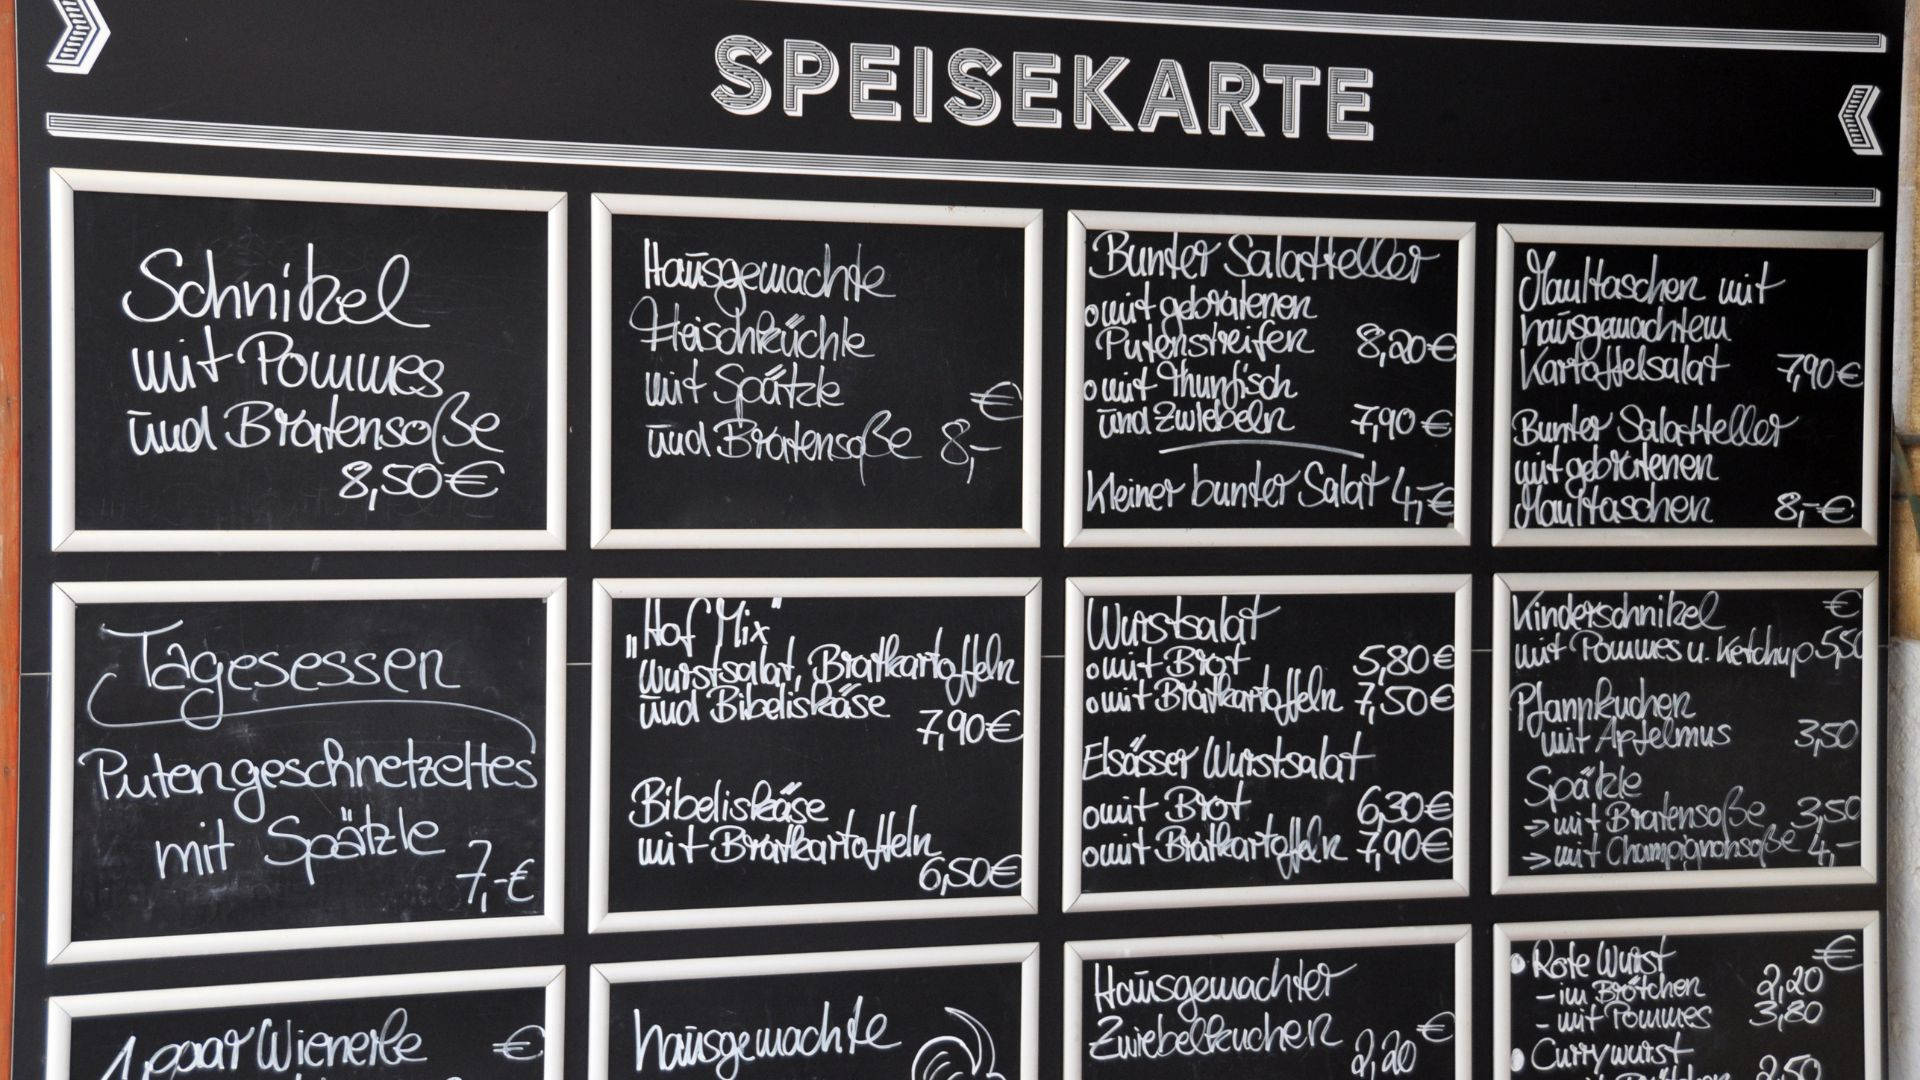 SPEISEKARTE
Schnitzel
mit Pommes
und Bratensoße
8,50€
Hausgemachte
Fleischküchle
mit Spätzle €
und Bratensoße 8,-
Bunter Salatteller
o mit gebratenen
Putenstreifen 8,20€
o mit Thunfisch
und Zwiebeln 7,90€
Kleiner bunter Salat 4,-€
Maultaschen mit
hausgemachtem
Kartoffelsalat 7,90€
Bunter Salatteller
mit gebratenen
Maultaschen 8,-€
Tagesessen
Putengeschnetzeltes
mit Spätzle
7,-€
„Hof Mix"
Wurstsalat, Bratkartoffeln
und Bibeliskäse
7,90€
Bibeliskäse
mit Bratkartoffeln
6,50€
Wurstsalat
o mit Brot 5,80€
o mit Bratkartoffeln 7,50€
Elsässer Wurstsalat
o mit Brot 6,30€
o mit Bratkartoffeln 7,90€
Kinderschnitzel €
mit Pommes u. Ketchup 5,50
Pfannkuchen
mit Apfelmus 3,50
Spätzle
→ mit Bratensoße 3,50
→ mit Champignonsoße 4,-
1 paar Wienerle €
hausgemachte
Hausgemachter
Zwiebelkuchen €
2,20
• Rote Wurst €
- im Brötchen 2,20
- mit Pommes 3,80
• Currywurst
2,50